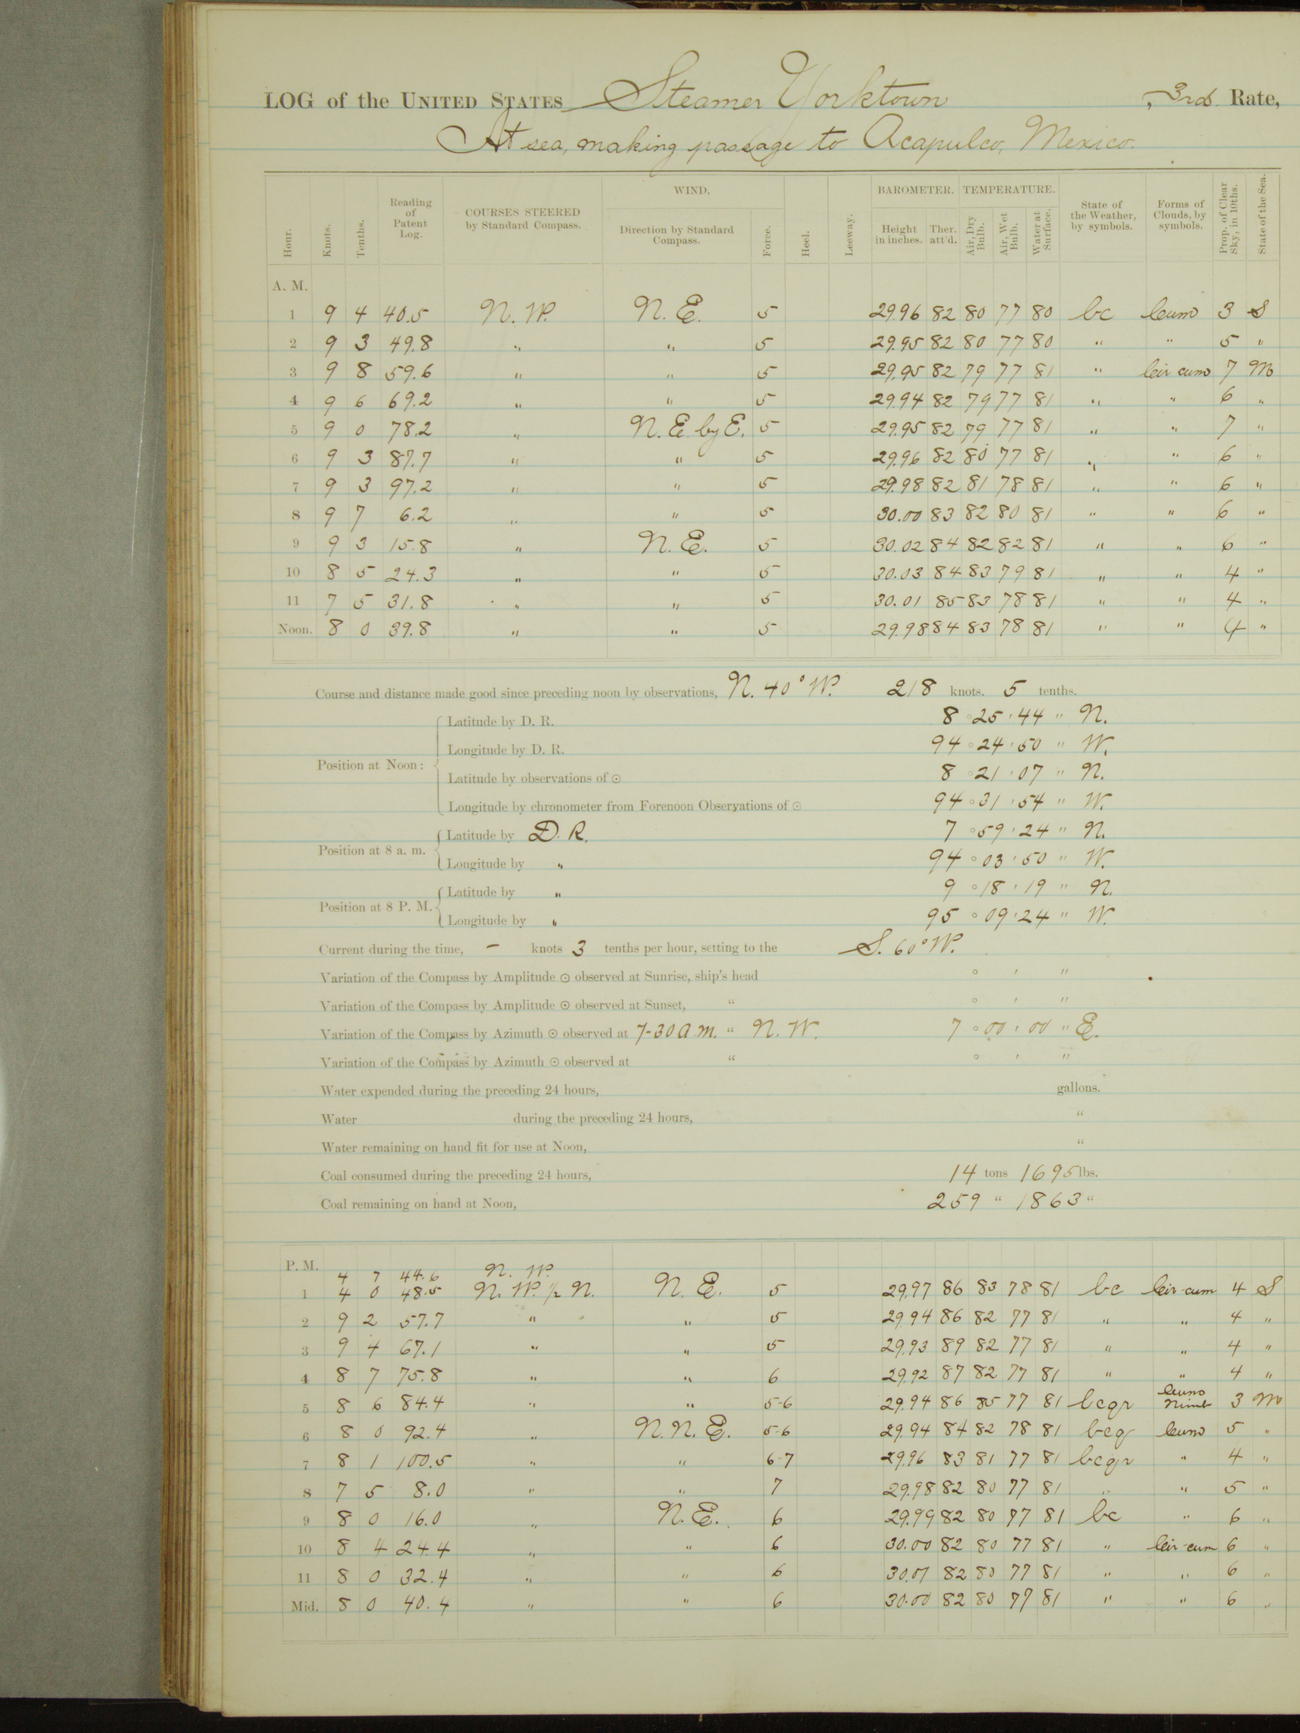 LOG of the UNITED STATES Steamer Yorktown, 3rd. Rate,
At sea, making passage to Acapulco, Mexico.
Hour. Knots. Tenths. Reading of Patent Log. COURSES STEERED by Standard Compass. WIND. Direction by Standard Compass. Force. Heel. Leeway. BAROMETER. Height in inches. Ther. att'd. TEMPERATURE. Air, Dry Bulb. Air, Wet Bulb. Water at Surface. State of the Weather, by symbols. Forms of Clouds, by symbols. Prop. of Clear Sky, in 10ths. State of the Sea.
A. M.
1 9 4 40.5 N. W. N. E. 5 29.96 82 80 77 80 bc Cumo 3 S
2 9 3 49.8 " " 5 29.95 82 80 77 80 " " 5 "
3 9 8 59.6 " " 5 29.95 82 79 77 81 " Cir cumo 7 M
4 9 6 69.2 " " 5 29.94 82 79 77 81 " " 6 "
5 9 0 78.2 " N. E. by E. 5 29.95 82 79 77 81 " " 7 "
6 9 3 87.7 " " 5 29.96 82 80 77 81 " " 6 "
7 9 3 97.2 " " 5 29.98 82 81 78 81 " " 6 "
8 9 7 6.2 " " 5 30.00 83 82 80 81 " " 6 "
9 9 3 15.8 " N. E. 5 30.02 84 82 82 81 " " 6 "
10 8 5 24.3 " " 5 30.03 84 83 79 81 " " 4 "
11 7 5 31.8 " " 5 30.01 85 83 78 81 " " 4 "
Noon. 8 0 39.8 " " 5 29.98 84 83 78 81 " " 4 "
Course and distance made good since preceding noon by observations, N. 40° W. 218 knots. 5 tenths.
Latitude by D. R. 8 ° 25 ' 44 " N.
Longitude by D. R. 94 ° 24 ' 50 " W.
Position at Noon:
Latitude by observations of ☉ 8 ° 21 ' 07 " N.
Longitude by chronometer from Forenoon Observations of ☉ 94 ° 31 ' 54 " W.
Latitude by D. R. 7 ° 59 ' 24 " N.
Position at 8 a. m.
Longitude by " 94 ° 03 ' 50 " W.
Latitude by " 9 ° 18 ' 19 " N.
Position at 8 P. M.
Longitude by " 95 ° 09 ' 24 " W.
Current during the time, - knots 3 tenths per hour, setting to the S. 60° W.
Variation of the Compass by Amplitude ☉ observed at Sunrise, ship's head ° ' "
Variation of the Compass by Amplitude ☉ observed at Sunset, " ° ' "
Variation of the Compass by Azimuth ☉ observed at 7-30 a.m. " N. W. 7 ° 00 ' 00 " E.
Variation of the Compass by Azimuth ☉ observed at " ° ' "
Water expended during the preceding 24 hours, gallons.
Water during the preceding 24 hours, "
Water remaining on hand fit for use at Noon, "
Coal consumed during the preceding 24 hours, 14 tons 1695 lbs.
Coal remaining on hand at Noon, 259 " 1863 "
P. M.
4 7 44.6 N. W.
1 4 0 48.5 N. W. ½ N. N. E. 5 29.97 86 83 78 81 bc Cir-cum 4 S
2 9 2 57.7 " " 5 29.94 86 82 77 81 " " 4 "
3 9 4 67.1 " " 5 29.93 89 82 77 81 " " 4 "
4 8 7 75.8 " " 6 29.92 87 82 77 81 " " 4 "
5 8 6 84.4 " " 5-6 29.94 86 85 77 81 bcqr Cumo Nimb 3 M
6 8 0 92.4 " N. N. E. 5-6 29.94 84 82 78 81 bcq Cumo 5 "
7 8 1 100.5 " " 6-7 29.96 83 81 77 81 bcqr " 4 "
8 7 5 8.0 " " 7 29.98 82 80 77 81 " " 5 "
9 8 0 16.0 " N. E. 6 29.99 82 80 77 81 bc " 6 "
10 8 4 24.4 " " 6 30.00 82 80 77 81 " Cir-cum 6 "
11 8 0 32.4 " " 6 30.01 82 80 77 81 " " 6 "
Mid. 8 0 40.4 " " 6 30.00 82 80 77 81 " " 6 "